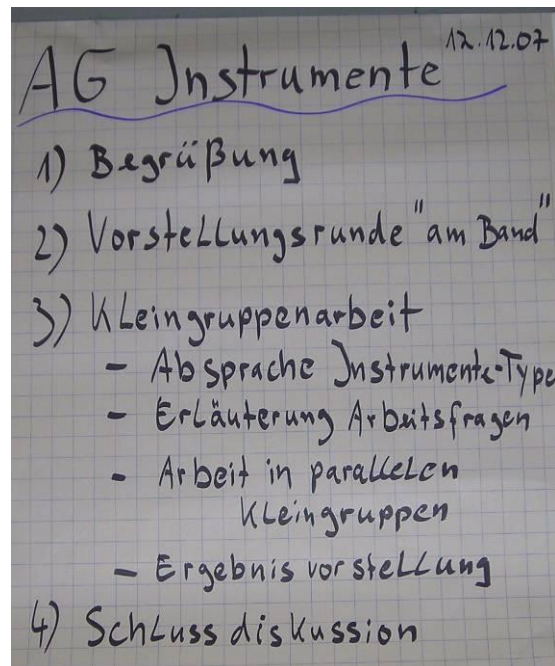 12.12.07
AG Instrumente
1) Begrüßung
2) Vorstellungsrunde "am Band"
3) Kleingruppenarbeit
- Absprache Instrumente-Type
- Erläuterung Arbeitsfragen
- Arbeit in parallelen
Kleingruppen
- Ergebnisvorstellung
4) Schlussdiskussion